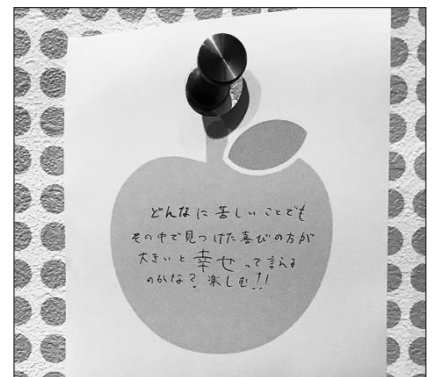 どんなに苦しいことでも
その中で見つけた喜びの方が
大きいと幸せって言える
のかな？楽しむ!!